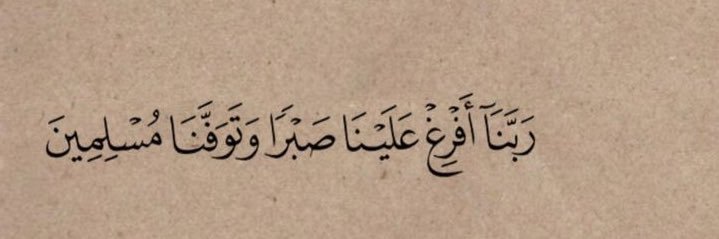 رَبَّنَآ أَفۡرِغۡ عَلَيۡنَا صَبۡرٗا وَتَوَفَّنَا مُسۡلِمِينَ